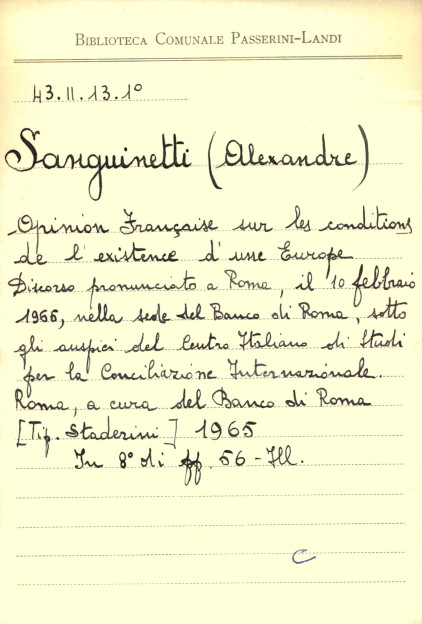 BIBLIOTECA COMUNALE PASSERINI-LANDI
43.II.13.1°
Sanguinetti (Alexandre)
Opinion Française sur les conditions
de l'existence d'une Europe
Discorso pronunciato a Roma, il 10 febbraio
1966, nella sede del Banco di Roma, sotto
gli auspici del Centro Italiano di Studi
per la Conciliazione Internazionale.
Roma, a cura del Banco di Roma
[Tip. Staderini] 1965
In 8° di pp. 56 - Ill.
C